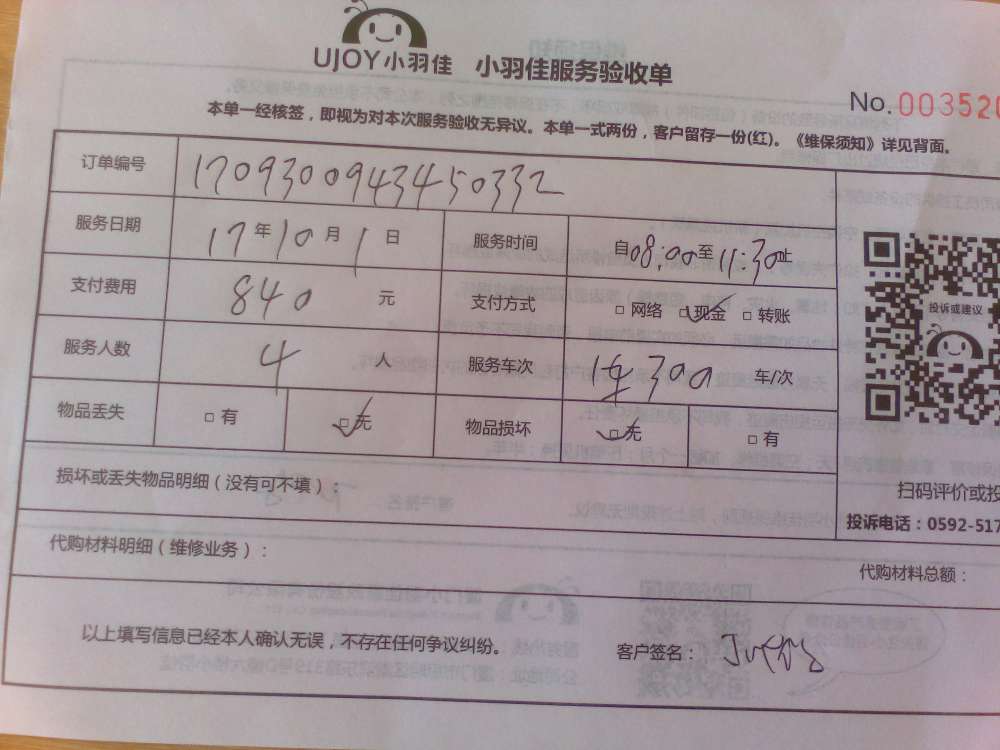 UJOY小羽佳 小羽佳服务验收单
No. 003520
本单一经核签，即视为对本次服务验收无异议。本单一式两份，客户留存一份(红)。《维保须知》详见背面。
订单编号 1709300943450332
服务日期 17年10月1日 服务时间 自08:00至11:30止
支付费用 840 元 支付方式 □网络 □现金 □转账
投诉或建议
服务人数 4 人 服务车次 车300 车/次
物品丢失 □有 □无 物品损坏 □无 □有
损坏或丢失物品明细（没有可不填）：
扫码评价或投
投诉电话：0592-517
代购材料明细（维修业务）：
代购材料总额：
以上填写信息已经本人确认无误，不存在任何争议纠纷。 客户签名：